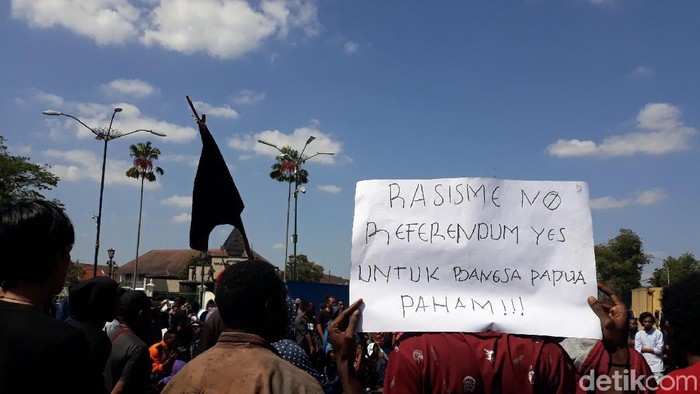 RASISME NO
REFERENDUM YES
UNTUK BANGSA PAPUA
PAHAM!!!
detikcom